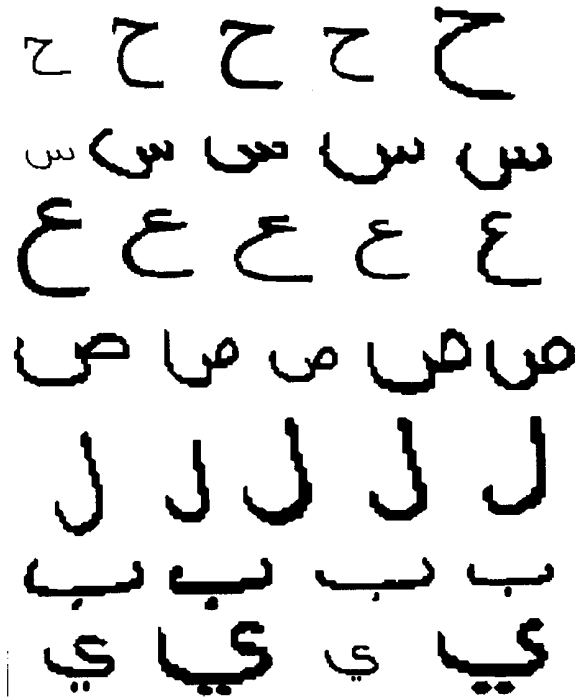 ح ح ح ح ح
س س س س س
ع ع ع ع ع
ص ص ص ص ص
ل ل ل ل ل
ب ب ب ب
ي ي ي ي